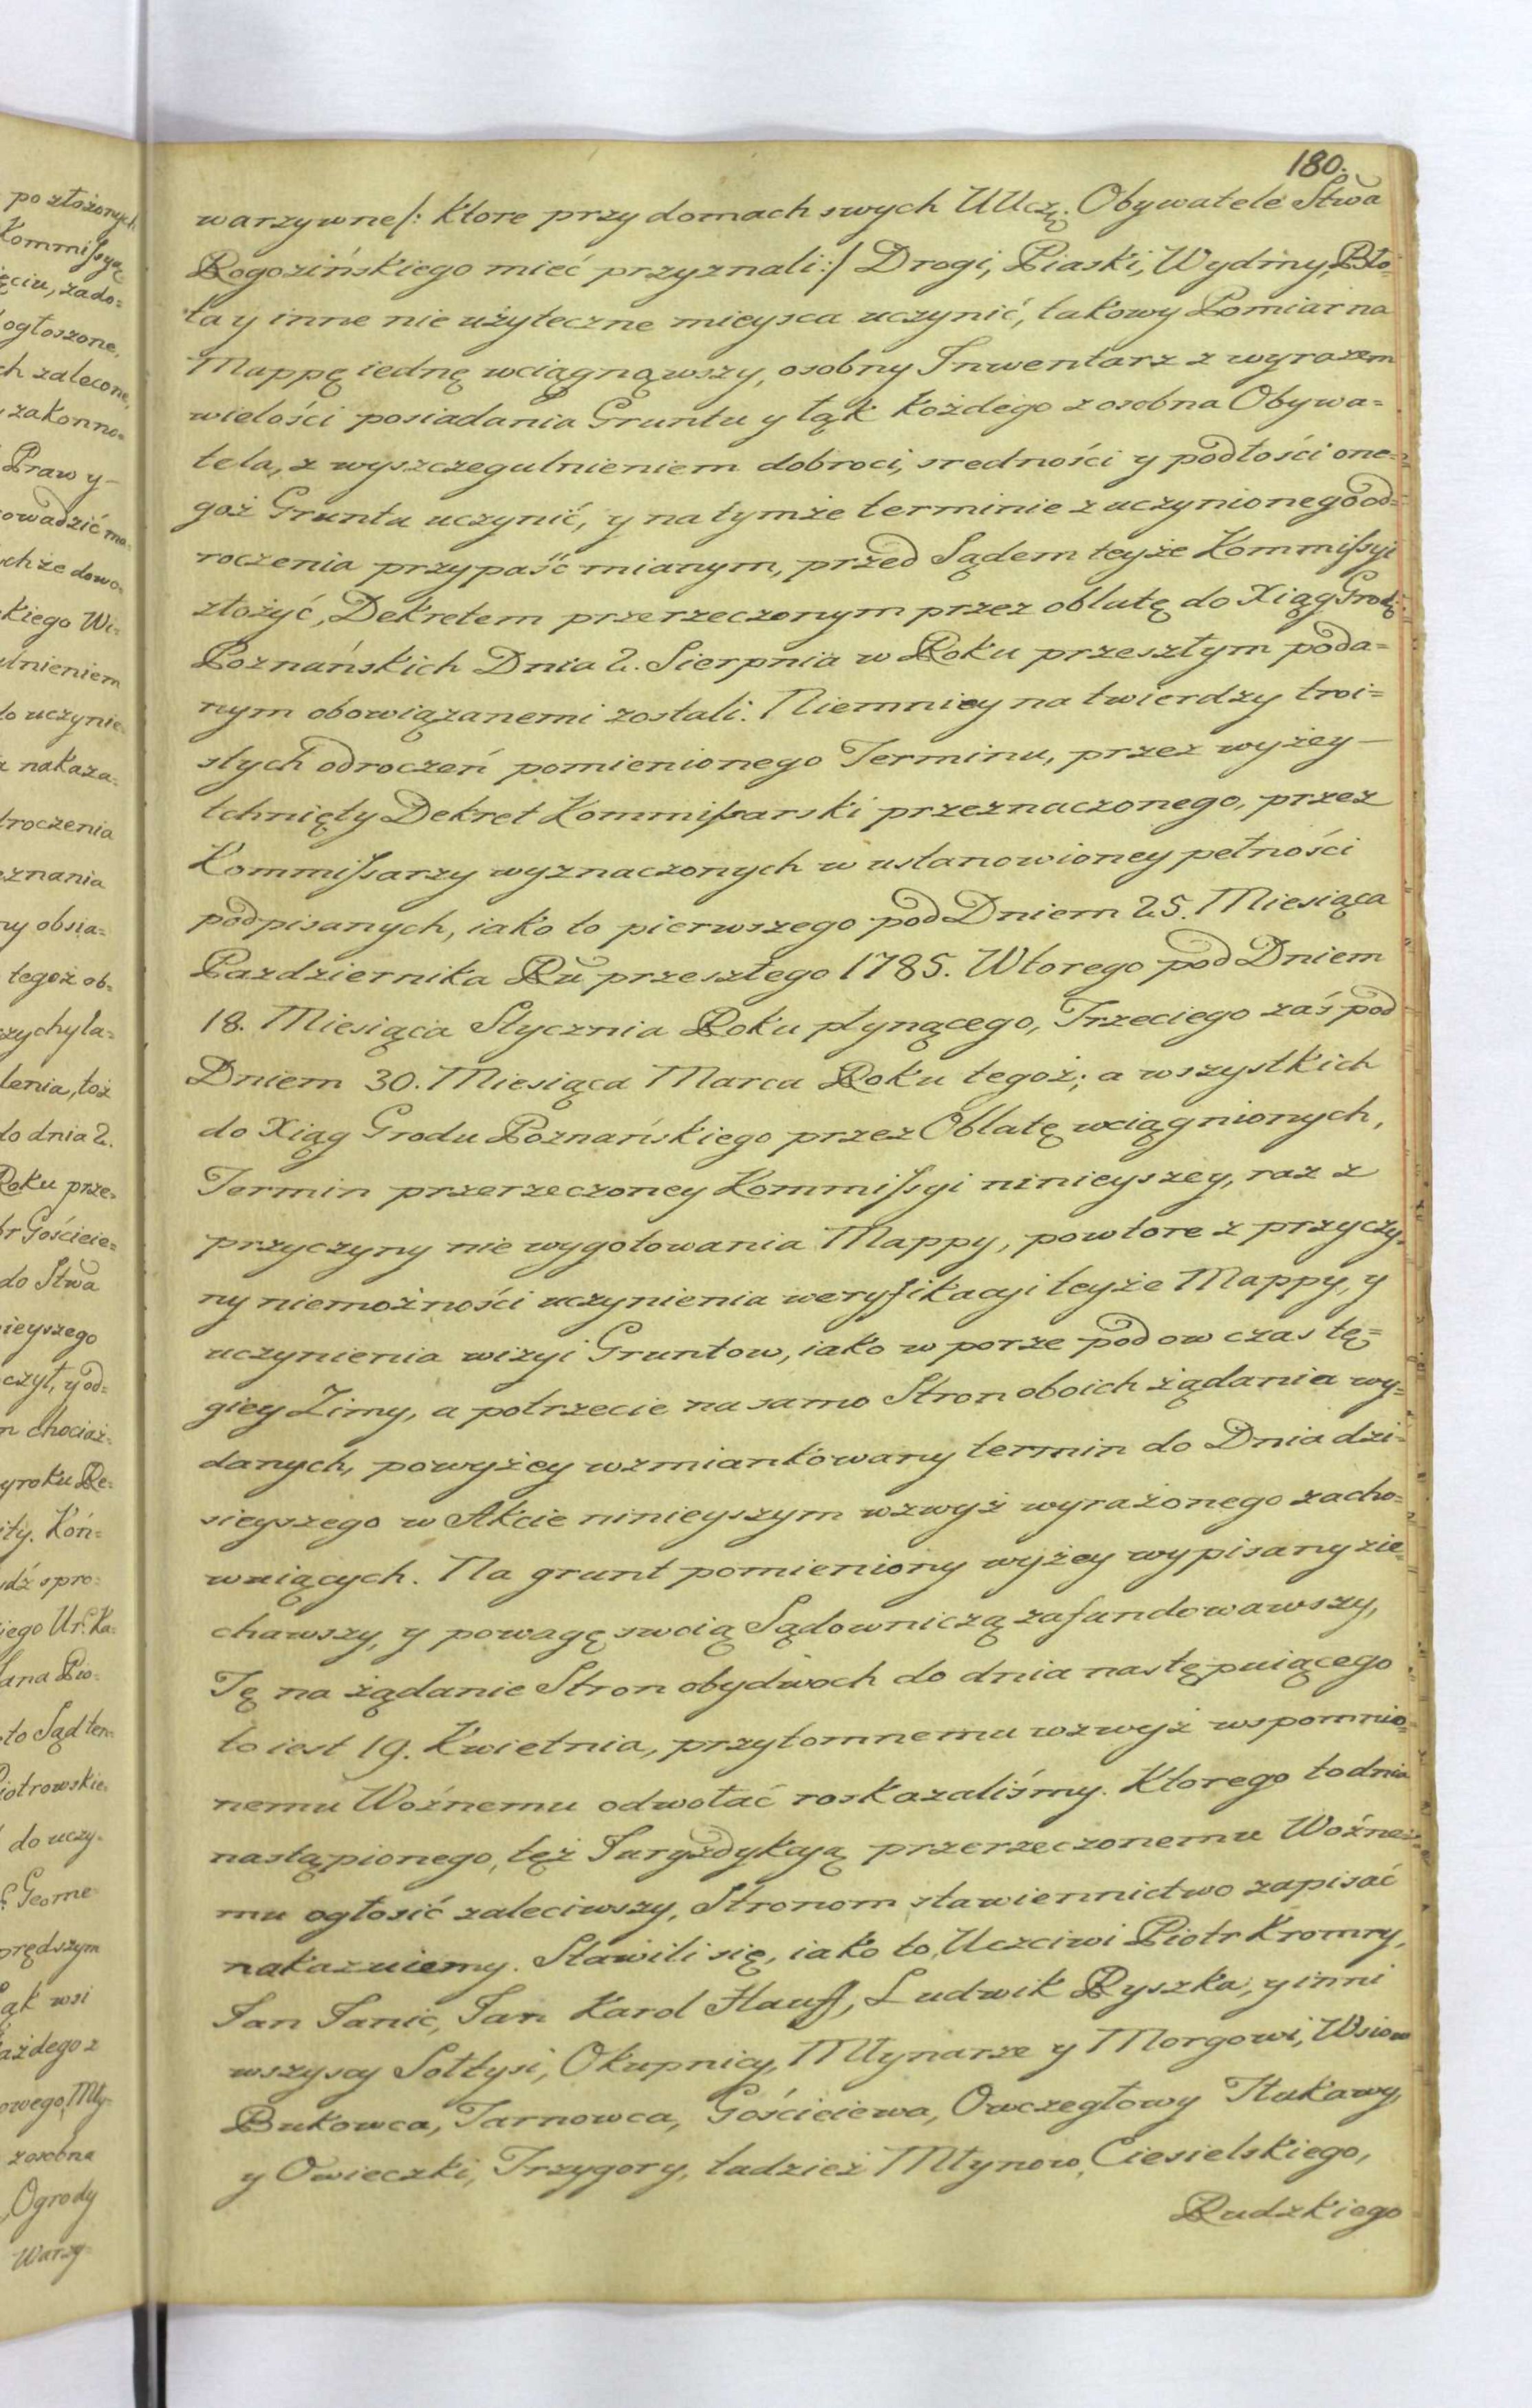 180.
warzywne/: ktore przy domach swych UUczę. Obywatele Stwa
Rogozińskiego mieć przyznali:/ Drogi, Piaski, Wydmy, Bło=
ta y inne nie użyteczne mieysca uczynić, takowy Pomiar na
Mappę iednę wciągnąwszy, osobny Inwentarz z wyrazem
wielości posiadania Gruntu y łąk każdego z osobna Obywa=
tela, z wyszczegulnieniem dobroci, sredności y podłości one=
goż Gruntu uczynić, y na tymże terminie z uczynionego od=
roczenia przypaść mianym, przed Sądem teyże Kommissyi
złożyć, Dekretem przerzeczonym przez oblatę do Xiąg Grodz.
Poznańskich Dnia 2. Sierpnia w Roku przeszłym poda=
nym obowiązanemi zostali. Niemniey na twierdzy troi=
stych odroczeń pomienionego Terminu, przez wyżey
tchnięty Dekret Kommissarski przeznaczonego, przez
Kommissarzy wyznaczonych w ustanowioney pełności
podpisanych, iako to pierwszego pod Dniem 25. Miesiąca
Pazdziernika Ru przeszłego 1785. Wtorego pod Dniem
18. Miesiąca Stycznia Roku płynącego, Trzeciego zaś pod
Dniem 30. Miesiąca Marca Roku tegoż; a wszystkich
do Xiąg Grodu Poznańskiego przez Oblatę wciągnionych,
Termin przerzeczoney Kommissyi ninieyszey, raz z
przyczyny nie wygotowania Mappy, powtore z przyczy=
ny niemożności uczynienia weryfikacyi teyże Mappy, y
uczynienia wizyi Gruntow, iako w porze pod ow czas tę=
giey Zimy, a potrzecie na samo Stron oboich żądania wy=
danych, powyżey wzmiankowany termin do Dnia dzi=
sieyszego w Akcie ninieyszym wzwyż wyrażonego zacho=
wuiących. Na grunt pomieniony wyżey wypisany zie=
chawszy, y powagę swoią Sądowniczą zafundowawszy,
Tę na żądanie Stron obydwoch do dnia następuiącego
to iest 19. Kwietnia, przytomnemu wzwyż wspomnio=
nemu Woźnemu odwołać roskazaliśmy. Ktorego to dnia
nastąpionego, tęż Juryzdykcyą przerzeczonemu Woźne=
mu ogłosić zaleciwszy, Stronom stawiennictwo zapisać
nakazuiemy. Stawili się, iako to, Uczciwi Piotr Kromry,
Jan Janic, Jan Karol Hauff, Ludwik Ryszka, y inni
wszyscy Sołtysi, Okupnicy, Młynarze y Morgowi, Wsiow
Bukowca, Tarnowca, Gościeiewa, Owczegłowy Tłukawy,
y Owieczki, Trzygory, tudzież Młynow, Ciesielskiego,
Rudzkiego